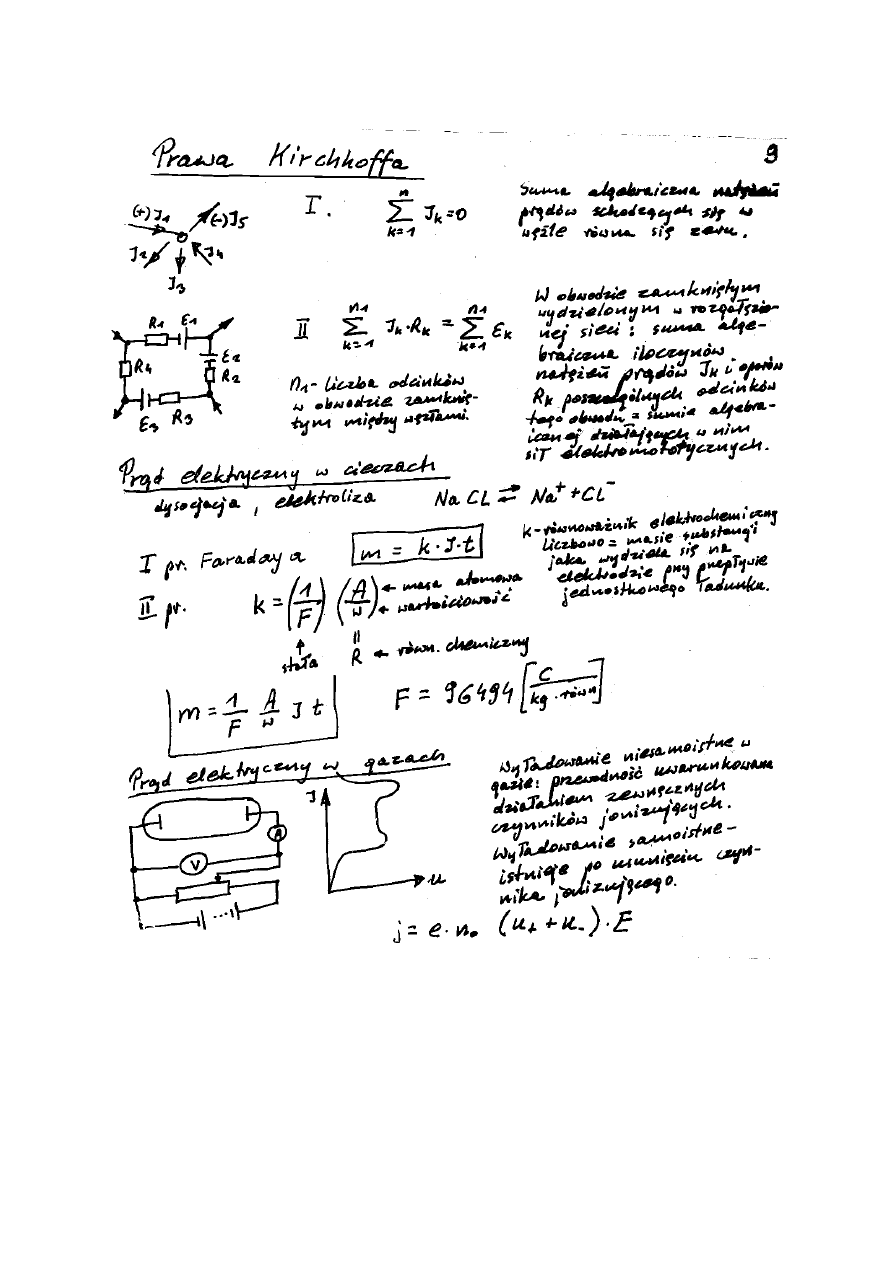 Prawa Kirchhoffa
9
(+) J1
(-) J5
J2
J4
J3
I. n∑k=1 Jk=0
Suma algebraiczna natężeń
prądów schodzących się w
węźle równa się zeru.
R1 E1
E2
R2
R4
E3 R3
II n1∑k=1 Jk·Rk = n1∑k=1 Ek
n1- liczba odcinków
w obwodzie zamknię-
tym między węzłami.
W obwodzie zamkniętym
wydzielonym w rozgałęzio-
nej sieci: suma alge-
braiczna iloczynów
natężeń prądów Jk i oporów
Rk poszczególnych odcinków
tego obwodu = sumie algebra-
icznej działających w nim
sił elektromototycznych.
Prąd elektryczny w cieczach
dysocjacja, elektroliza
NaCL ⇄ Na⁺ + CL⁻
I pr. Faraday a
m = k·J·t
k-równoważnik elektrochemiczny
liczbowo = masie substancji
jaka wydziela się na
elektrodzie przy przepływie
jednostkowego ładunku.
II pr.
k = (1/F) (A/w) ← masa atomowa
← wartościowość
↑ stała
= R ← równ. chemiczny
m = 1/F A/w J t
F = 96494 [C / kg·równ]
Prąd elektryczny w gazach
A
V
J
u
Wyładowanie niesamoistne w
gazie: przewodność uwarunkowana
działaniem zewnęcznych
czynników jonizujących.
Wyładowanie samoistne-
istnieje po usunięciu czyn-
nika jonizującego.
j = e·n₀ (u₊ + u₋)·E